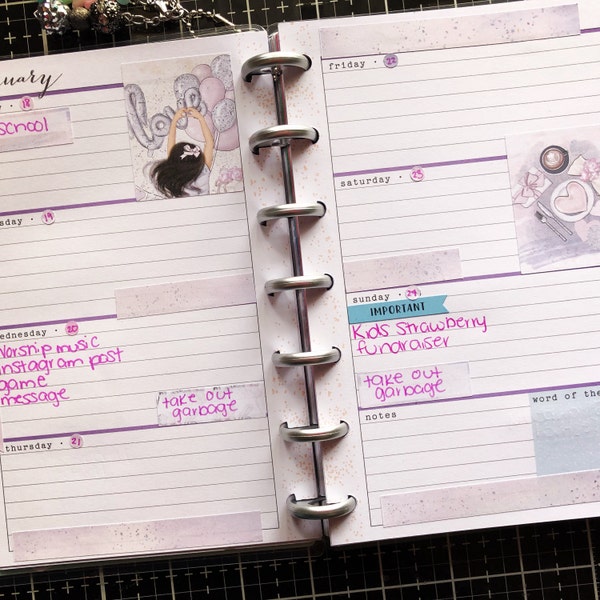 nuary
18
school
sday · 19
wednesday · 20
Worship music
instagram post
game
message
take out
garbage
thursday · 21
love
friday · 22
saturday · 23
sunday · 24
IMPORTANT
Kids Strawberry
fundraiser
take out
garbage
notes
word of the